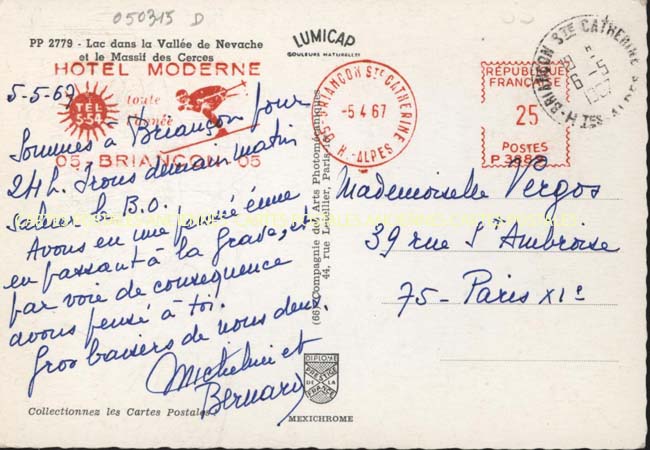 050315 D
PP 2779 - Lac dans la Vallée de Nevache
et le Massif des Cerces
LUMICAP
COULEURS NATURELLES
HOTEL MODERNE
TEL
5-54
toute
année
05 BRIANCON 05
5-5-67
Sommes à Briançon pour
24 h. Irons demain matin
saluer le B.O.
Avons eu une pensée émue
en passant à la Grave, et
par voie de consequence
avons pensé à toi.
Gros baisers de nous deux.
Micheline et
Bernard
Collectionnez les Cartes Postales
05 BRIANÇON STE CATHERINE
-5 4 67
H.-ALPES
RÉPUBLIQUE
FRANÇAISE
25
POSTES
BRIANÇON STE CATHERINE
HTES-ALPES
Compagnie des Arts Photomécaniques
44, rue Letellier, Paris
Mademoiselle Vergos
39 rue St Ambroise
75 - Paris XIe
DIPLOME
PRESTIGE
DE LA
FRANCE
MEXICHROME